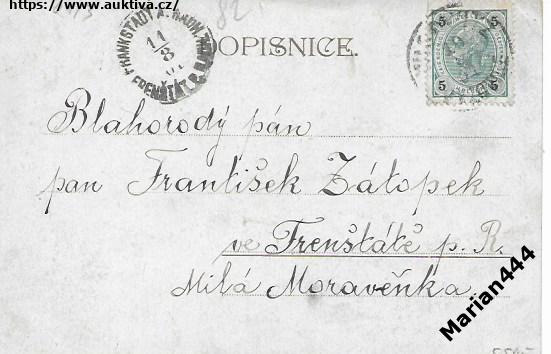 https://www.auktiva.cz/
82
FRANKSTADT A. RADH.
11/8
FRENŠTÁT P. R.
DOPISNICE.
5 5
5 5
Blahorodý pán
pan František Zátopek
ve Frenštátě p. R.
Milá Moravěnka.
Marian444